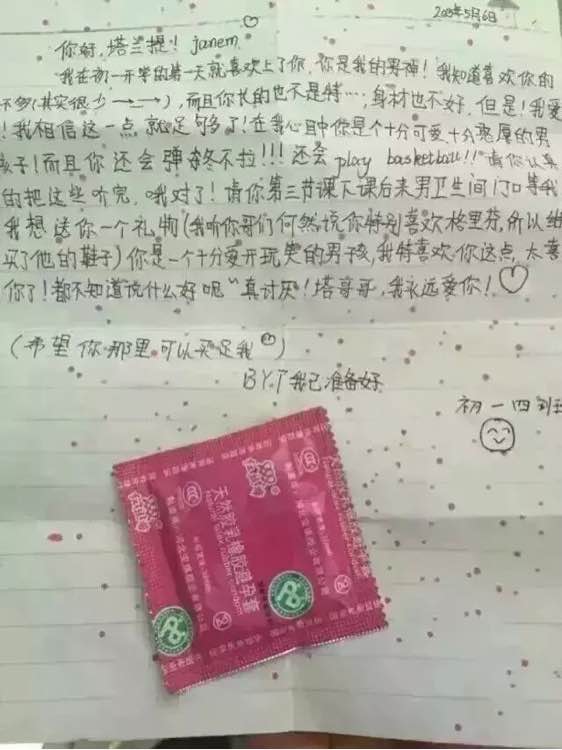 2023年5月6日
你好,塔兰提! janem
我在初一开学的第一天就喜欢上了你,你是我的男神!我知道喜欢你的
不多(其实很少),而且你长的也不是特…,身材也不好,但是!我爱
!我相信这一点就足够了!在我心目中你是个十分可爱十分憨厚的男
孩子!而且你还会弹冬不拉!!!还会play basketball!!请你认真
的把这些听完,哦对了!请你第三节课下课后来男卫生间门口等我
我想送你一个礼物(我听你哥们何然说你特别喜欢格里芬,所以给
买了他的鞋子)你是一个十分爱开玩笑的男孩,我特喜欢你这点,太喜
你了!都不知道说什么好呢"真讨厌!塔哥哥,我永远爱你!
(希望你那里可以满足我)
B.Y.T我已准备好
初一四班
天然胶乳橡胶避孕套
Natural latex rubber condom